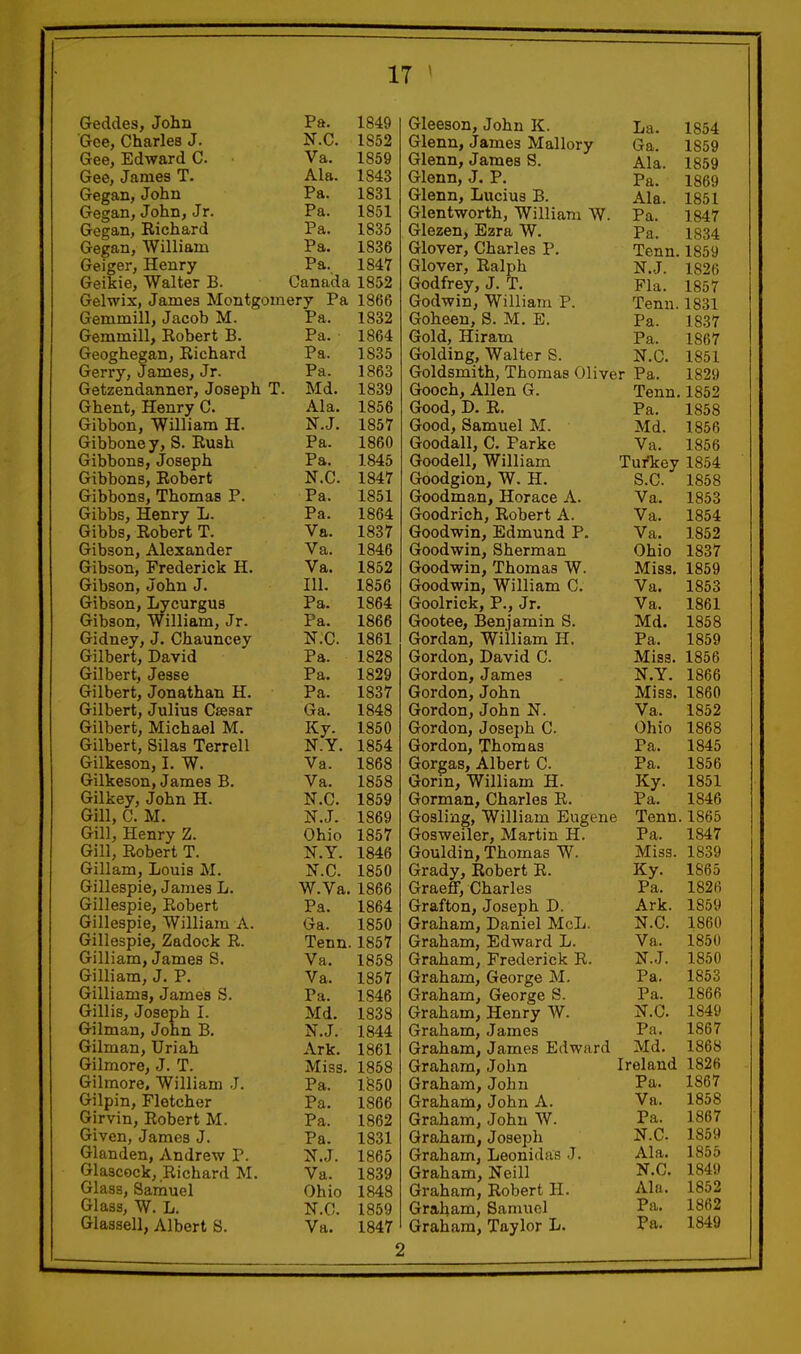 17
Geddes, John Pa. 1849
Gee, Charles J. N.C. 1852
Gee, Edward C. Va. 1859
Gee, James T. Ala. 1843
Gegan, John Pa. 1831
Gegan, John, Jr. Pa. 1851
Gegan, Richard Pa. 1835
Gegan, William Pa. 1836
Geiger, Henry Pa. 1847
Geikie, Walter B. Canada 1852
Gelwix, James Montgomery Pa 1866
Gemmill, Jacob M. Pa. 1832
Gemmill, Robert B. Pa. 1864
Geoghegan, Richard Pa. 1835
Gerry, James, Jr. Pa. 1863
Getzendanner, Joseph T. Md. 1839
Ghent, Henry C. Ala. 1856
Gibbon, William H. N.J. 1857
Gibboney, S. Rush Pa. 1860
Gibbons, Joseph Pa. 1845
Gibbons, Robert N.C. 1847
Gibbons, Thomas P. Pa. 1851
Gibbs, Henry L. Pa. 1864
Gibbs, Robert T. Va. 1837
Gibson, Alexander Va. 1846
Gibson, Frederick H. Va. 1852
Gibson, John J. Ill. 1856
Gibson, Lycurgus Pa. 1864
Gibson, William, Jr. Pa. 1866
Gidney, J. Chauncey N.C. 1861
Gilbert, David Pa. 1828
Gilbert, Jesse Pa. 1829
Gilbert, Jonathan H. Pa. 1837
Gilbert, Julius Cæsar Ga. 1848
Gilbert, Michael M. Ky. 1850
Gilbert, Silas Terrell N.Y. 1854
Gilkeson, I. W. Va. 1868
Gilkeson, James B. Va. 1858
Gilkey, John H. N.C. 1859
Gill, C. M. N.J. 1869
Gill, Henry Z. Ohio 1857
Gill, Robert T. N.Y. 1846
Gillam, Louis M. N.C. 1850
Gillespie, James L. W.Va. 1866
Gillespie, Robert Pa. 1864
Gillespie, William A. Ga. 1850
Gillespie, Zadock R. Tenn. 1857
Gilliam, James S. Va. 1858
Gilliam, J. P. Va. 1857
Gilliams, James S. Pa. 1846
Gillis, Joseph I. Md. 1838
Gilman, John B. N.J. 1844
Gilman, Uriah Ark. 1861
Gilmore, J. T. Miss. 1858
Gilmore, William J. Pa. 1850
Gilpin, Fletcher Pa. 1866
Girvin, Robert M. Pa. 1862
Given, James J. Pa. 1831
Glanden, Andrew P. N.J. 1865
Glascock, Richard M. Va. 1839
Glass, Samuel Ohio 1848
Glass, W. L. N.C. 1859
Glassell, Albert S. Va. 1847
Gleeson, John K. La. 1854
Glenn, James Mallory Ga. 1859
Glenn, James S. Ala. 1859
Glenn, J. P. Pa. 1869
Glenn, Lucius B. Ala. 1851
Glentworth, William W. Pa. 1847
Glezen, Ezra W. Pa. 1834
Glover, Charles P. Tenn. 1859
Glover, Ralph N.J. 1826
Godfrey, J. T. Fla. 1857
Godwin, William P. Tenn. 1831
Goheen, S. M. E. Pa. 1837
Gold, Hiram Pa. 1867
Golding, Walter S. N.C. 1851
Goldsmith, Thomas Oliver Pa. 1829
Gooch, Allen G. Tenn. 1852
Good, D. R. Pa. 1858
Good, Samuel M. Md. 1856
Goodall, C. Parke Va. 1856
Goodell, William Turkey 1854
Goodgion, W. H. S.C. 1858
Goodman, Horace A. Va. 1853
Goodrich, Robert A. Va. 1854
Goodwin, Edmund P. Va. 1852
Goodwin, Sherman Ohio 1837
Goodwin, Thomas W. Miss. 1859
Goodwin, William C. Va. 1853
Goolrick, P., Jr. Va. 1861
Gootee, Benjamin S. Md. 1858
Gordan, William H. Pa. 1859
Gordon, David C. Miss. 1856
Gordon, James N.Y. 1866
Gordon, John Miss. 1860
Gordon, John N. Va. 1852
Gordon, Joseph C. Ohio 1868
Gordon, Thomas Pa. 1845
Gorgas, Albert C. Pa. 1856
Gorin, William H. Ky. 1851
Gorman, Charles R. Pa. 1846
Gosling, William Eugene Tenn. 1865
Gosweiler, Martin H. Pa. 1847
Gouldin, Thomas W. Miss. 1839
Grady, Robert R. Ky. 1865
Graeff, Charles Pa. 1826
Grafton, Joseph D. Ark. 1859
Graham, Daniel McL. N.C. 1860
Graham, Edward L. Va. 1850
Graham, Frederick R. N.J. 1850
Graham, George M. Pa. 1853
Graham, George S. Pa. 1866
Graham, Henry W. N.C. 1849
Graham, James Pa. 1867
Graham, James Edward Md. 1868
Graham, John Ireland 1826
Graham, John Pa. 1867
Graham, John A. Va. 1858
Graham, John W. Pa. 1867
Graham, Joseph N.C. 1859
Graham, Leonidas J. Ala. 1855
Graham, Neill N.C. 1849
Graham, Robert H. Ala. 1852
Graham, Samuel Pa. 1862
Graham, Taylor L. Pa. 1849
2